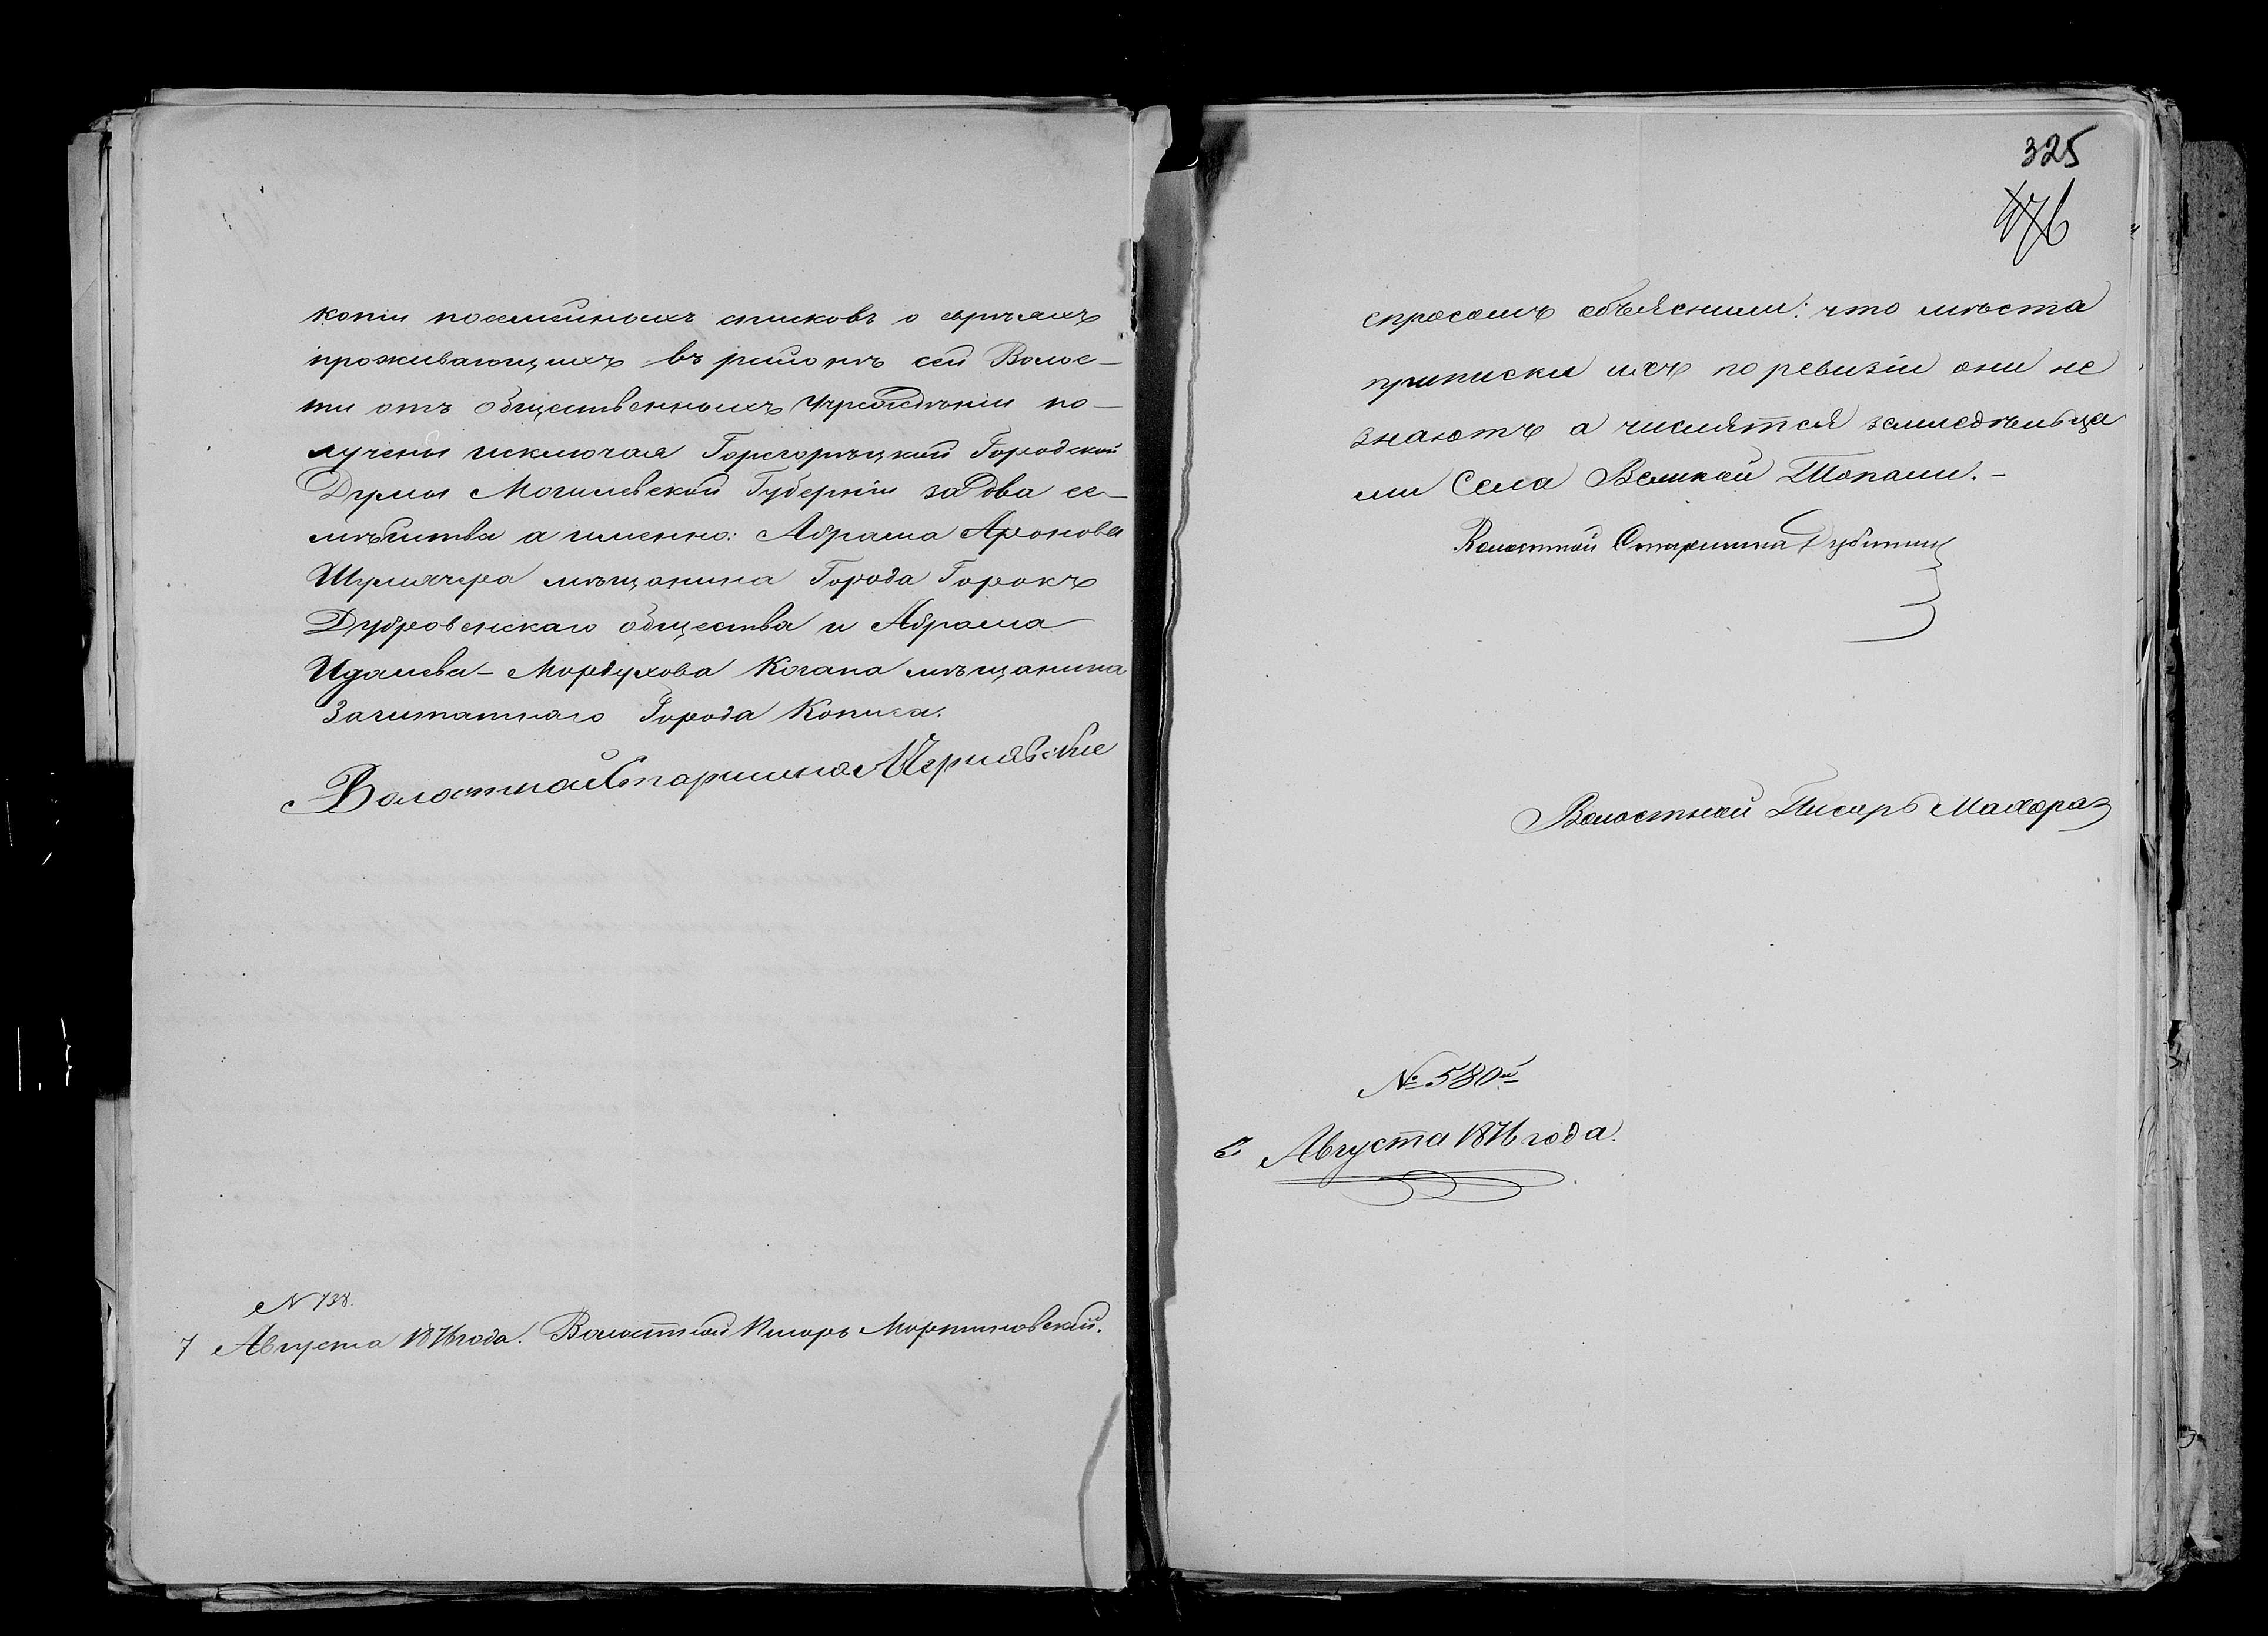 копіи посемейныхъ списковъ о евреяхъ
проживающихъ въ районѣ сей Волос-
ти отъ общественныхъ Учрежденіи по-
лучены исключая Горегорецкой Городской
Думы Могилевской Губерніи за два се-
мѣйства а именно: Абрама Аронова
мѣщанина Города Горокъ
Дубровенскаго общества и Абрама
Мордухова Когана мѣщанина
Заштатнаго Города Кописа.
Волостной Старшина Чернявскіе
N 738.
7 Августа 1876 года. Волостной Писарь Мартиновский.
325
476
спросомъ объяснили: что мѣста
приписки ихъ по ревизіи они не
знаютъ а числятся земледѣльца
ми Села Великой Топали.-
Волостной Старшина
Волостной Писарь
№ 580й
6 Августа 1876 года.